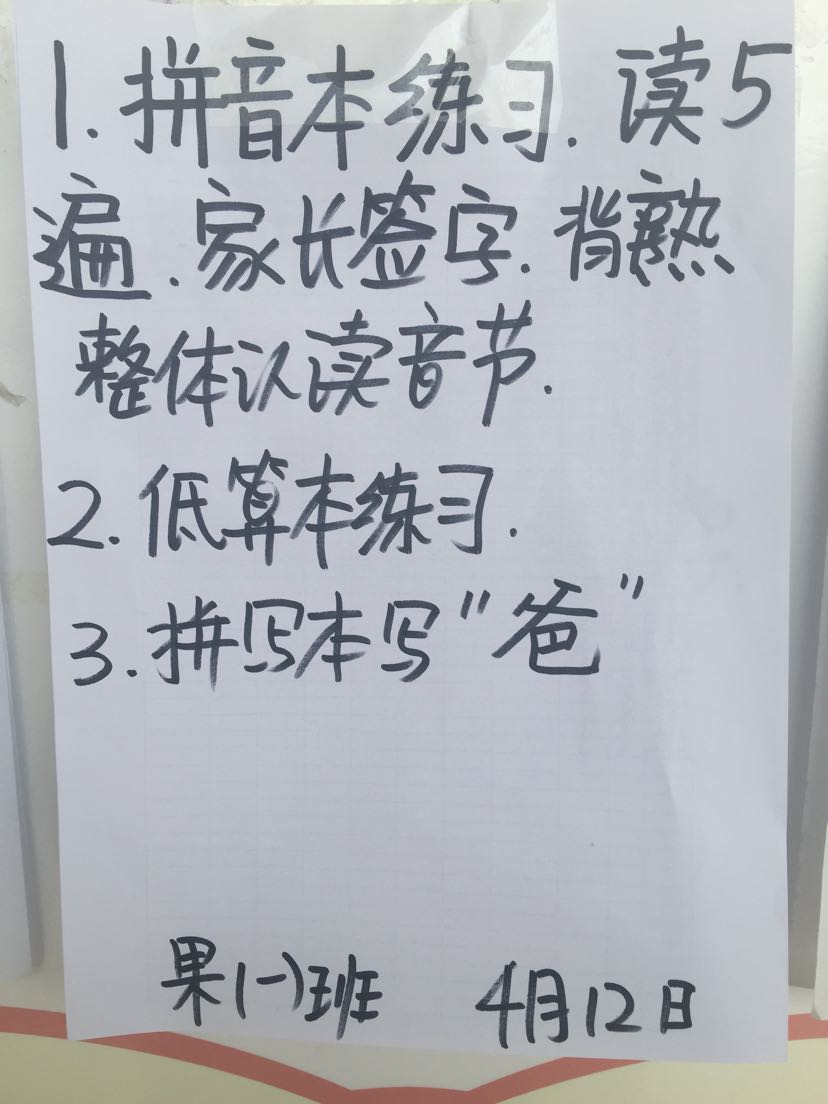 1. 拼音本练习. 读5
遍. 家长签字. 背熟
整体认读音节.
2. 低算本练习.
3. 拼写本写"爸"
果(一)班 4月12日